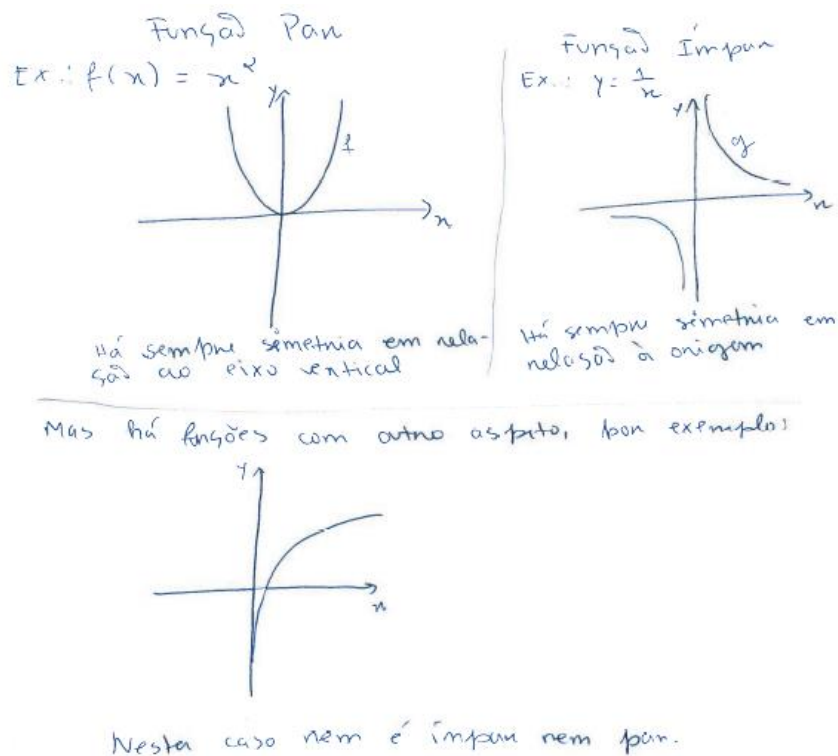 Função Par
Ex.: f(x) = x²
y
f
x
Há sempre simetria em rela-
ção ao eixo vertical
Função Ímpar
Ex.: y = 1/x
y
g
x
Há sempre simetria em
relação à origem
Mas há funções com outro aspeto, por exemplo:
y
x
Neste caso nem é ímpar nem par.